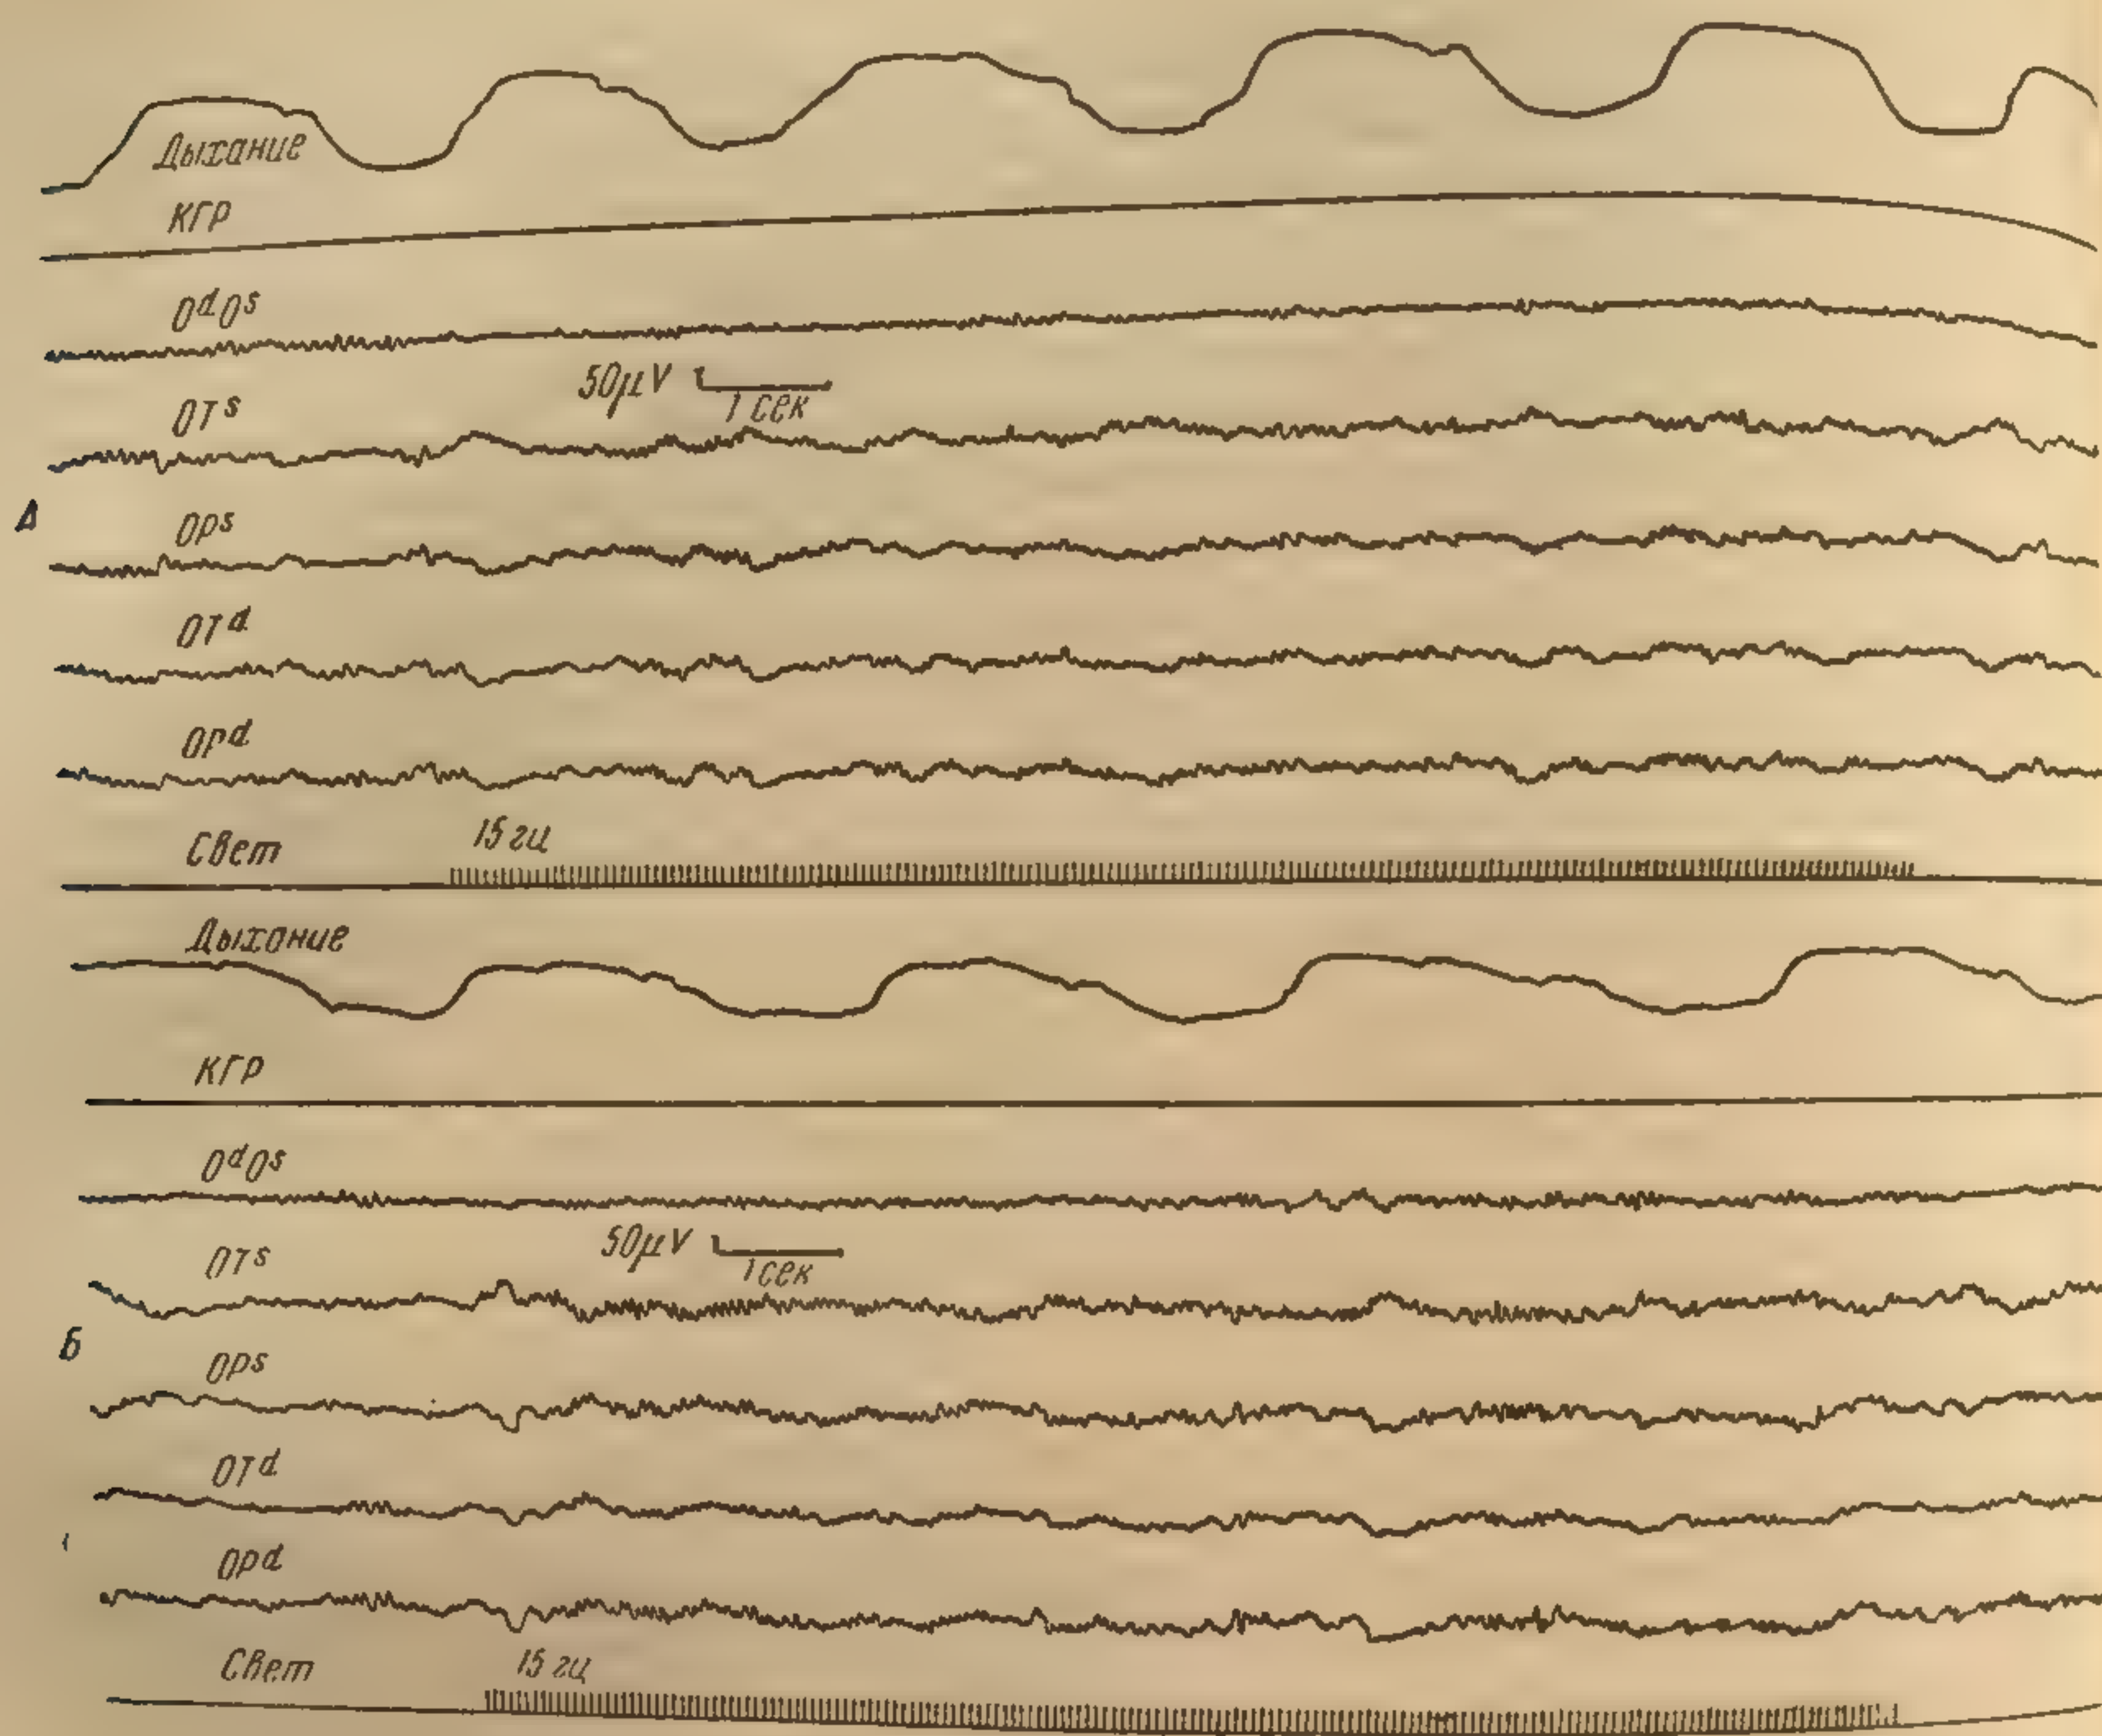 Дыхание
КГР
OdOs
50μV
1 сек
OTs
А
OPs
OTd
OPd
15 гц
Свет
Дыхание
КГР
OdOs
50μV
1 сек
OTs
Б
OPs
OTd
OPd
15 гц
Свет